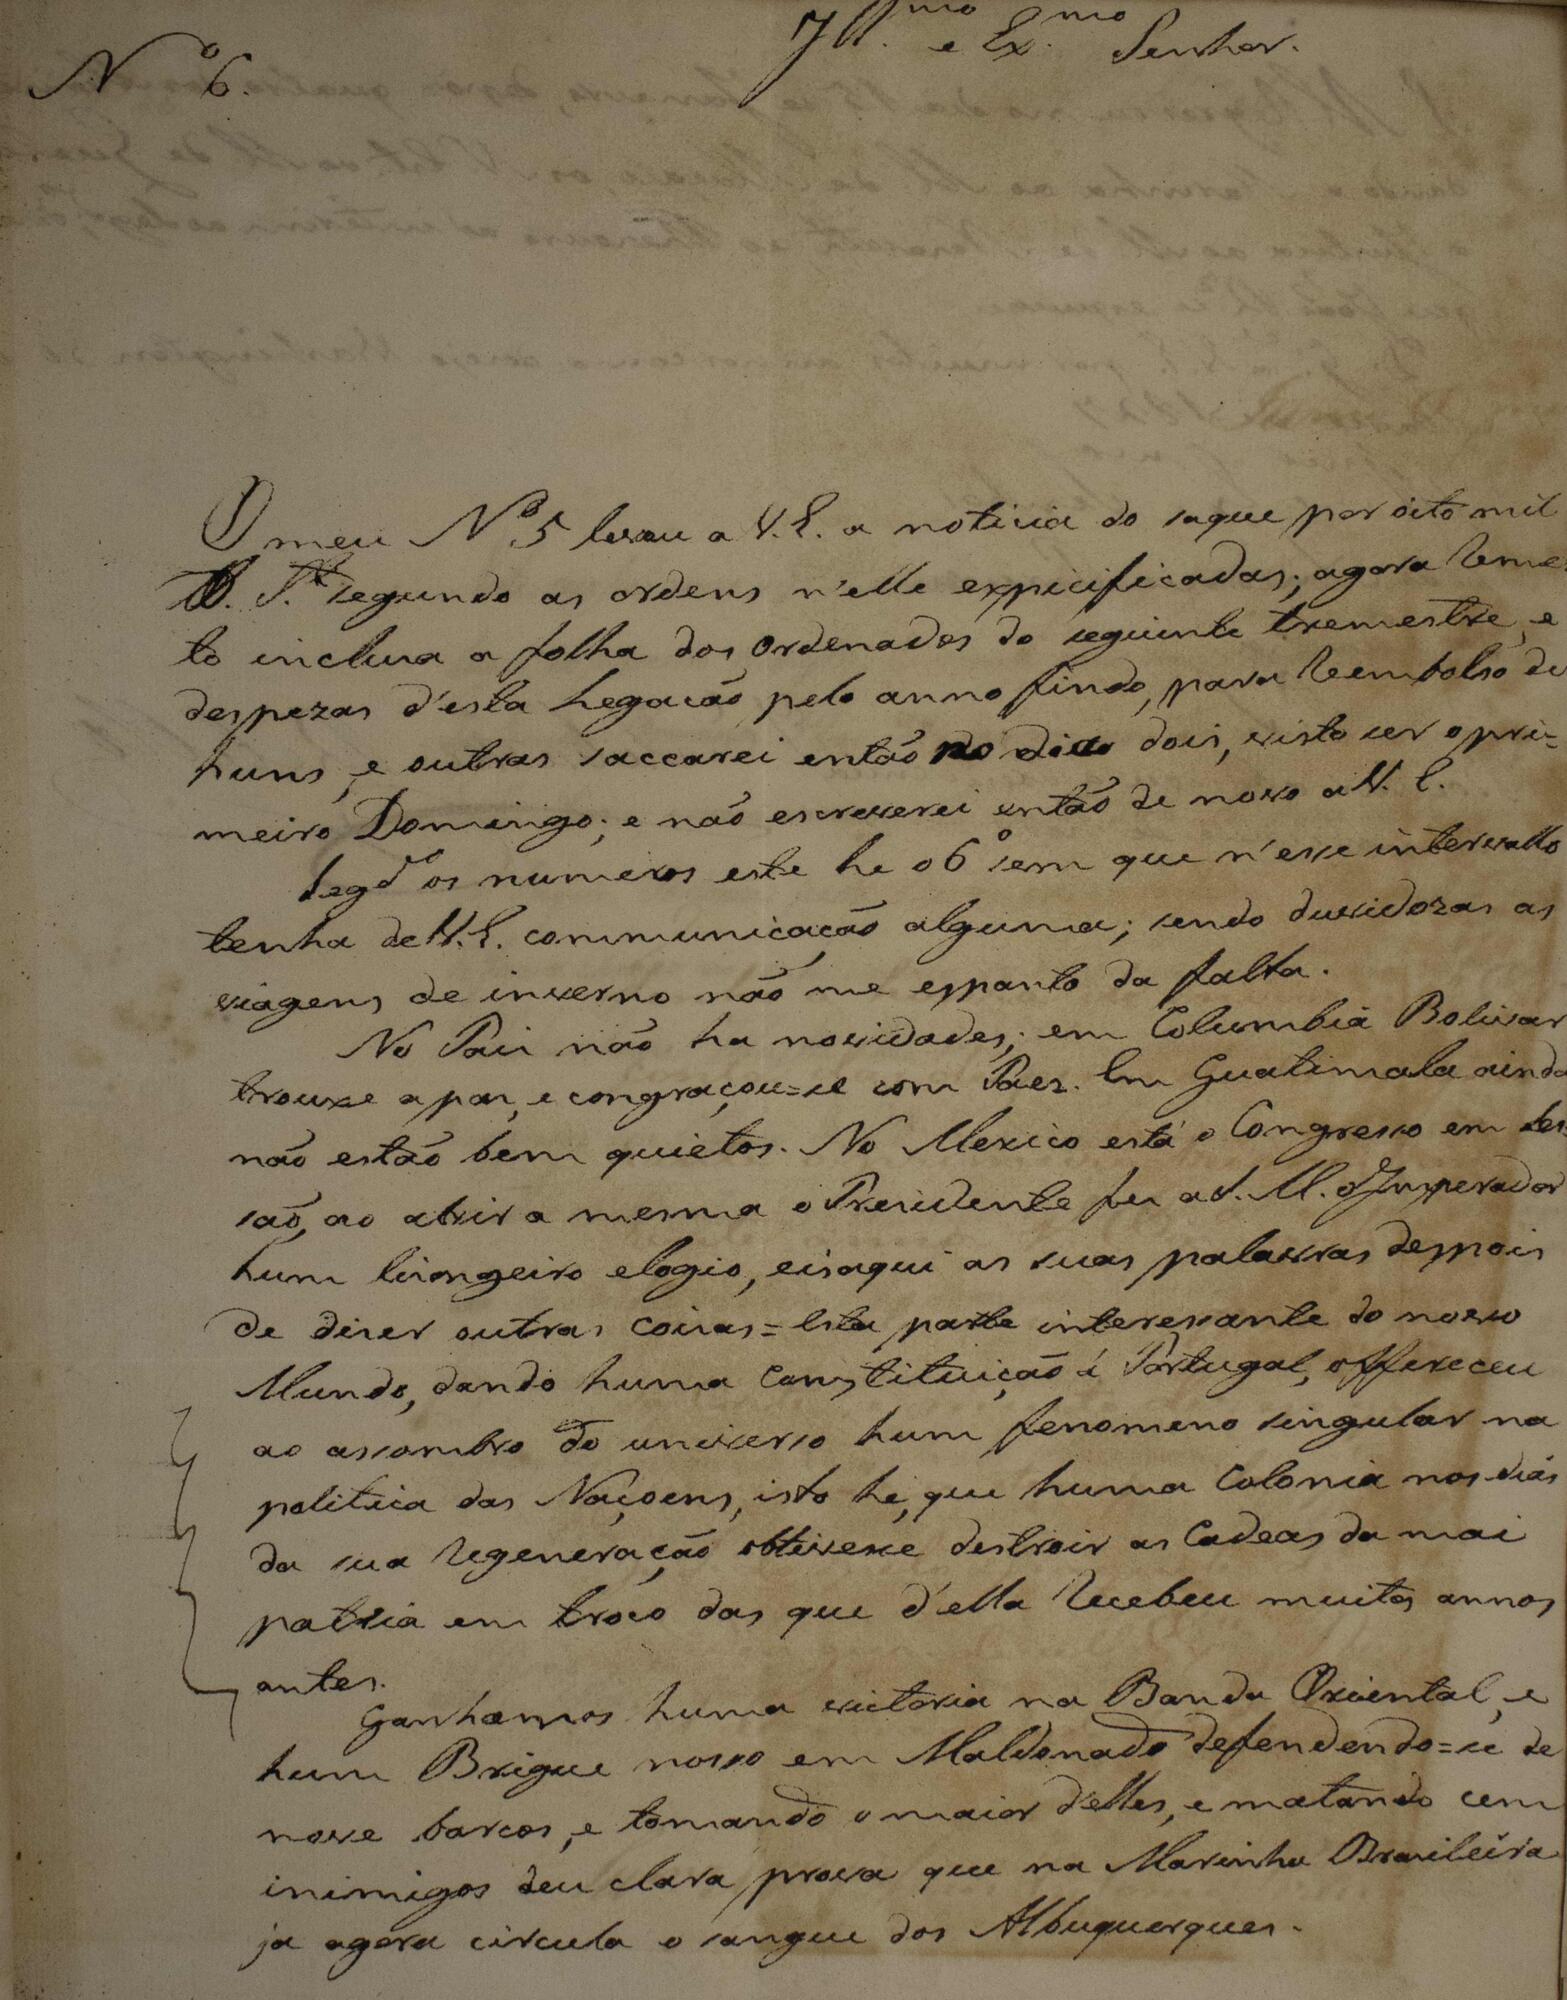 Ill.mo e Ex.mo Senhor.
Nº 6.
O meu Nº 5 levou a V. E. a noticia do saque por oito mil
segundo as ordens n'elle expicificadas; agora reme-
to inclusa a folha dos Ordenados do seguinte tremestre, e
despezas d'esta Legacão pelo anno findo, para reembolso de
huns, e outras saccarei então no dia dois, visto ser o pri=
meiro Domingo; e não escreverei então de novo a V. E.
Segdo os numeros este he o 6º sem que n'esse intervallo
tenha de V. E. communicação alguma; sendo duvidozas as
viagens de inverno não me espanto da falta.
No Pais não ha novidades; em Columbia Bolivar
trouxe a paz, e congraçou=se com Paez. Em Guatimala ainda
não estão bem quietos. No Mexico está o Congresso em Ses
são, ao abrir a mesma o Presidente fez a S. M. o Imperador
hum lisongeiro elogio, eisaqui as suas palavras despois
de dizer outras coizas = Esta parte interessante do nosso
Mundo, dando huma Constituição á Portugal, offereceu
ao assombro do universo hum fenomeno singular na
politica das Naçoens, isto hé, que huma Colonia nos dias
da sua regeneração obtivesse destroir as Cadeas da mai
patria em troco das que d'ella recebeu muitos annos
antes.
Ganhamos huma victoria na Banda Oriental, e
hum Brigue nosso em Maldonado defendendo=se de
nove barcos, e tomando o maior d'elles, e matando cem
inimigos deu clara prova que na Marinha Brasileira
ja agora circula o sangue dos Albuquerques.